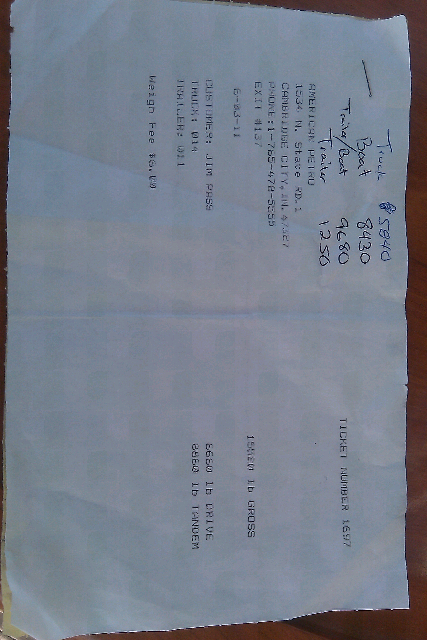 Truck 5840
Boat 8430
Trailer/Boat 9680
Trailer 1250
TICKET NUMBER 1697
AMERICAN PETRO
1534 N. State RD.1
CAMBRIDGE CITY,IN. 47327
PHONE:1-765-478-5555
EXIT #137
15520 lb GROSS
6-03-11
CUSTOMER: JIM
6660 lb DRIVE
TRUCK: 014
8860 lb TANDEM
TRAILER: 011
Weigh Fee $6.00